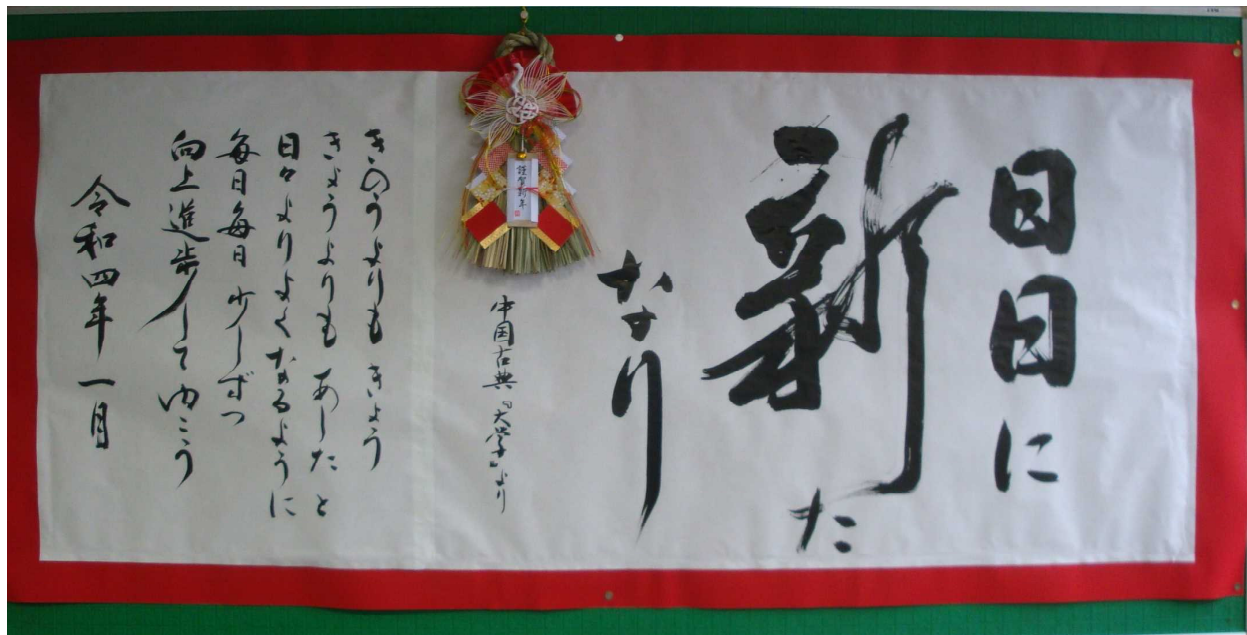 日日に
新た
なり
中国古典『大学』より
謹賀新年
きのうよりも きょう
きょうよりも あしたと
日々よりよくなるように
毎日毎日 少しずつ
向上進歩してゆこう
令和四年 一月